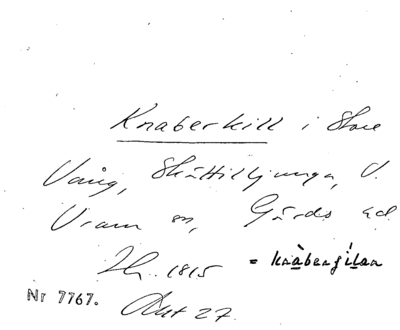 Knaberkill i Store
Vång, Skättilljunga, V.
Vram sn, Gärds hd
Zh. 1815 = knàbengílan
Nr 7767. Akt 27.